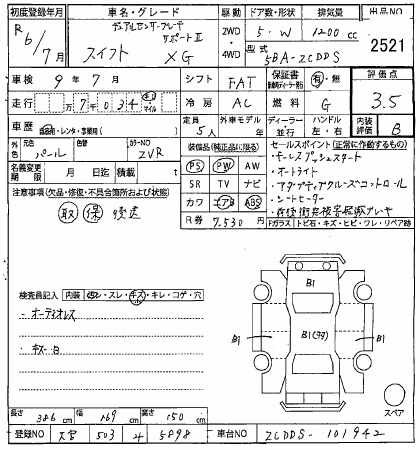 初度登録年月 車名・グレード 駆動 ドア数・形状 排気量 出品NO
R6/7月 デュアルセンサーブレーキサポートⅡ 2WD・4WD 5・W 1200cc 2521
スイフト XG 型式 5BA-ZCDDS
車検 9年7月 シフト FAT 保証書 有・無 評価点
走行 万7034 キロ マイル 冷房 AC 燃料 G 3.5
車歴 自家用・レンタ・事業用( ) 定員 5人 外車モデル 年 ディーラー・並行 ハンドル 左・右 内装評価 B
外色 元色 パール 色替 カラーNO ZVR
装備品(純正品に限る)
セールスポイント(正常に作動するもの)
名義変更期限 月 日迄 積載量 t
PS PW AW
SR TV ナビ
カワ エアB ABS
R券 7,530円
・キーレスプッシュスタート
・オートライト
・アダプティブクルーズコントロール
・シートヒーター
・前後衝突被害軽減ブレーキ
Fガラス トビ石・キズ・ヒビ・ワレ・リペア跡
注意事項(欠品・修復・不具合箇所および状態)
取 保 後送
検査員記入 内装 ヨゴレ・スレ・キズ・キレ・コゲ・穴
・オーディオレス
・キズ・B
B1
B1
B1(タタ)
B1
スペア
長さ 386cm 幅 169cm 高さ 150cm
登録NO 大宮 503 4 5898 車台NO ZCDDS-101942